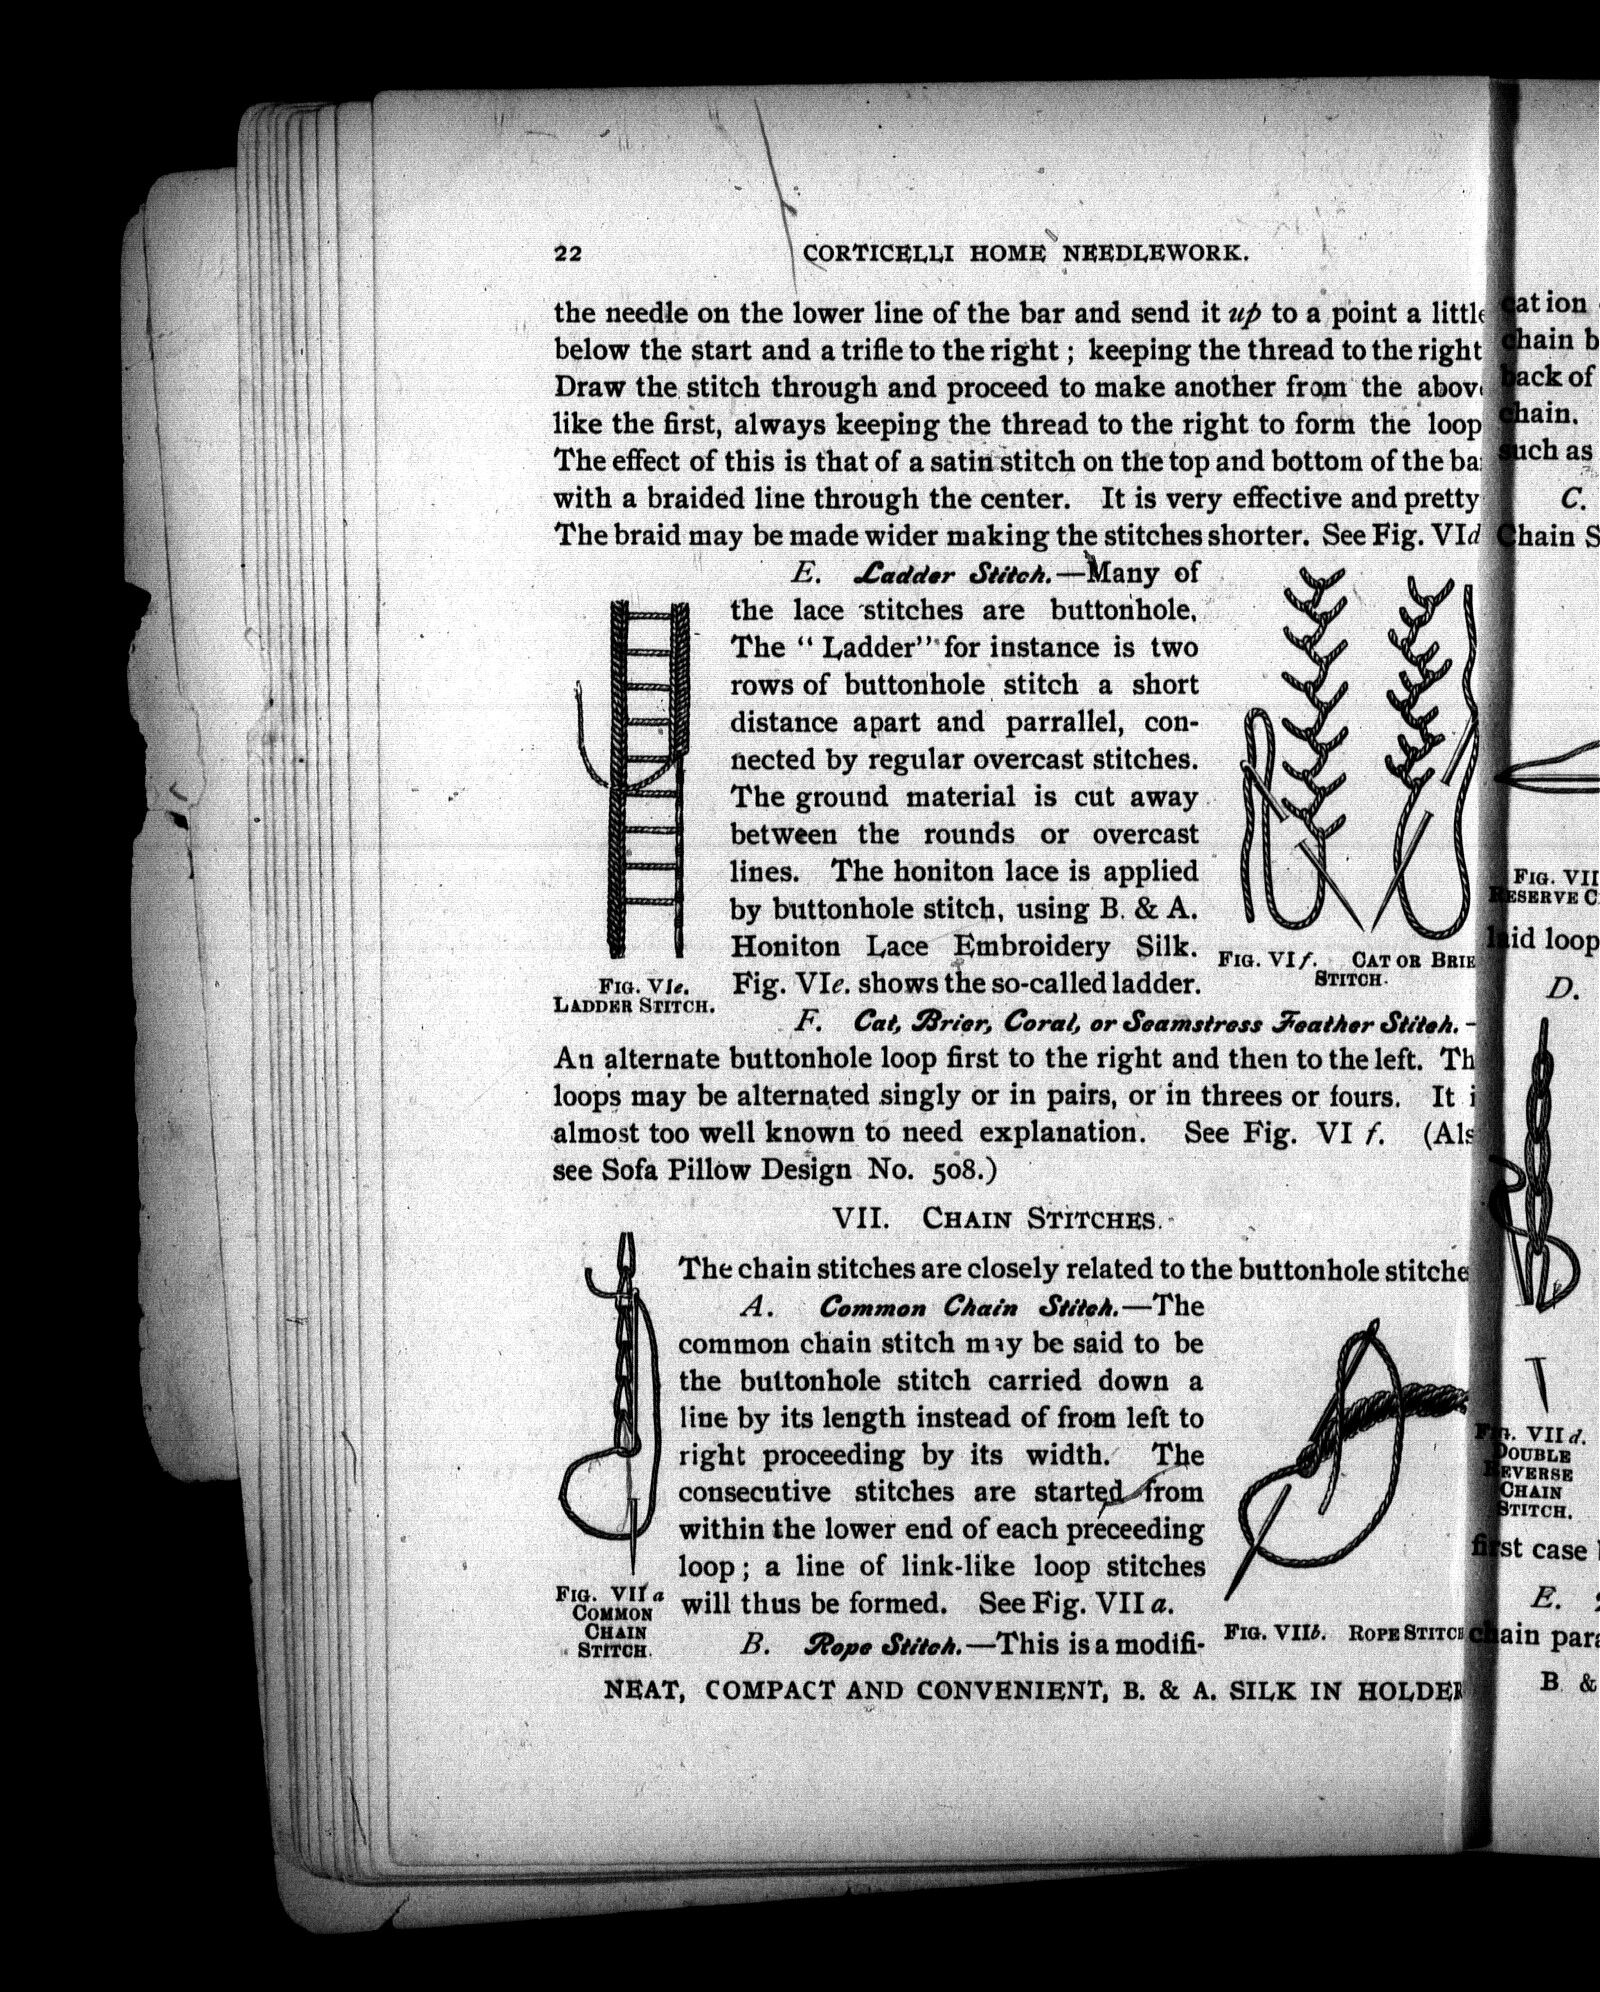 22 CORTICELLI HOME NEEDLEWORK.
the needle on the lower line of the bar and send it up to a point a little
below the start and a trifle to the right ; keeping the thread to the right
Draw the stitch through and proceed to make another from the above
like the first, always keeping the thread to the right to form the loop
The effect of this is that of a satin stitch on the top and bottom of the ba
with a braided line through the center. It is very effective and pretty
The braid may be made wider making the stitches shorter. See Fig. VId
E. Ladder Stitch.—Many of
the lace stitches are buttonhole.
The "Ladder" for instance is two
rows of buttonhole stitch a short
distance apart and parrallel, con-
nected by regular overcast stitches.
The ground material is cut away
between the rounds or overcast
lines. The honiton lace is applied
by buttonhole stitch, using B. & A.
Honiton Lace Embroidery Silk.
Fig. VIe. shows the so-called ladder.
FIG. VIe.
LADDER STITCH.
FIG. VI f. CAT OR BRIE
STITCH.
F. Cat, Brier, Coral, or Seamstress Feather Stitch.-
An alternate buttonhole loop first to the right and then to the left. Th
loops may be alternated singly or in pairs, or in threes or fours. It i
almost too well known to need explanation. See Fig. VI f. (Als
see Sofa Pillow Design No. 508.)
VII. CHAIN STITCHES.
The chain stitches are closely related to the buttonhole stitche
A. Common Chain Stitch.—The
common chain stitch may be said to be
the buttonhole stitch carried down a
line by its length instead of from left to
right proceeding by its width. The
consecutive stitches are started from
within the lower end of each preceeding
loop ; a line of link-like loop stitches
will thus be formed. See Fig. VII a.
FIG. VII a
COMMON
CHAIN
STITCH.
B. Rope Stitch.—This is a modifi-
FIG. VIIb. ROPE STITCH
NEAT, COMPACT AND CONVENIENT, B. & A. SILK IN HOLDER
cation
chain b
back of
chain.
such as
C.
Chain S
FIG. VII
RESERVE C
laid loop
D.
FIG. VII d.
DOUBLE
REVERSE
CHAIN
STITCH.
first case
E.
chain para
B &